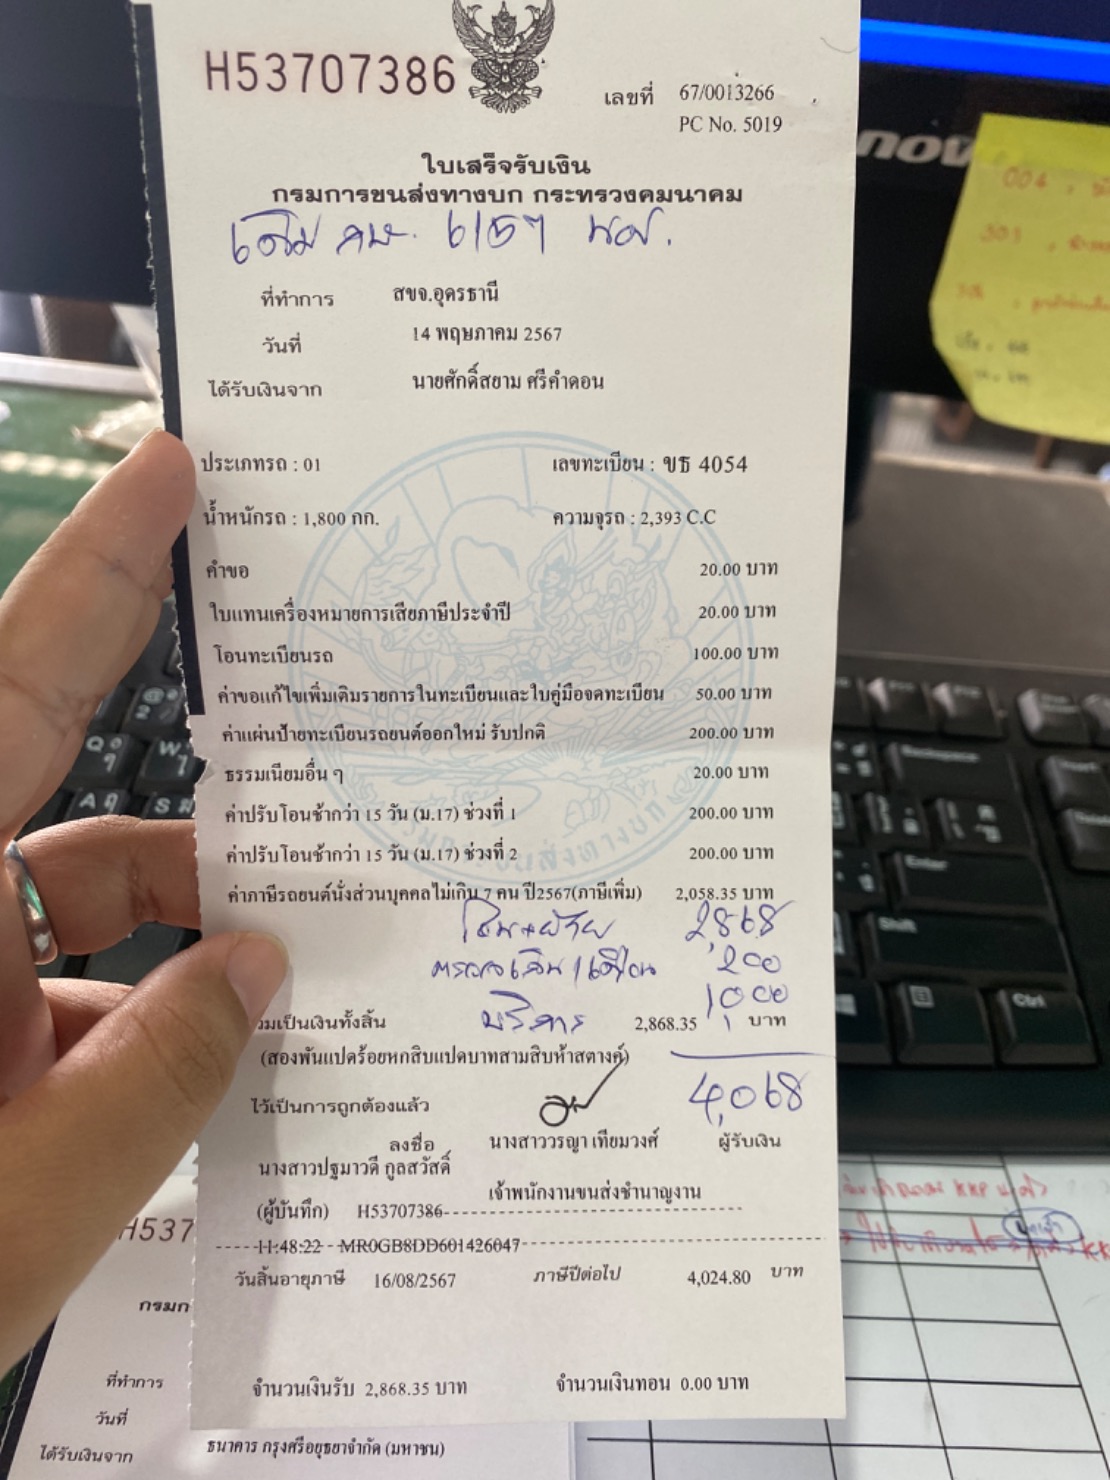 H53707386
เลขที่ 67/0013266
PC No. 5019
ใบเสร็จรับเงิน
กรมการขนส่งทางบก กระทรวงคมนาคม
เดิม
ที่ทำการ สขจ.อุดรธานี
วันที่ 14 พฤษภาคม 2567
ได้รับเงินจาก นายศักดิ์สยาม ศรีคำดอน
ประเภทรถ : 01 เลขทะเบียน : ขธ 4054
น้ำหนักรถ : 1,800 กก. ความจุรถ : 2,393 C.C
คำขอ 20.00 บาท
ใบแทนเครื่องหมายการเสียภาษีประจำปี 20.00 บาท
โอนทะเบียนรถ 100.00 บาท
ค่าขอแก้ไขเพิ่มเติมรายการในทะเบียนและใบคู่มือจดทะเบียน 50.00 บาท
ค่าแผ่นป้ายทะเบียนรถยนต์ออกใหม่ รับปกติ 200.00 บาท
ธรรมเนียมอื่น ๆ 20.00 บาท
ค่าปรับโอนช้ากว่า 15 วัน (ม.17) ช่วงที่ 1 200.00 บาท
ค่าปรับโอนช้ากว่า 15 วัน (ม.17) ช่วงที่ 2 200.00 บาท
ค่าภาษีรถยนต์นั่งส่วนบุคคลไม่เกิน 7 คน ปี2567(ภาษีเพิ่ม) 2,058.35 บาท
โอน+ย้าย 2,868
200
บริการ 1,000
วมเป็นเงินทั้งสิ้น 2,868.35 บาท
(สองพันแปดร้อยหกสิบแปดบาทสามสิบห้าสตางค์)
4,068
ไว้เป็นการถูกต้องแล้ว
ลงชื่อ นางสาววรญา เทียมวงศ์ ผู้รับเงิน
นางสาวปฐมาวดี กูลสวัสดิ์
เจ้าพนักงานขนส่งชำนาญงาน
(ผู้บันทึก) H53707386
11:48:22 MR0GB8DD601426047
วันสิ้นอายุภาษี 16/08/2567 ภาษีปีต่อไป 4,024.80 บาท
จำนวนเงินรับ 2,868.35 บาท จำนวนเงินทอน 0.00 บาท
H537
กรมก
ที่ทำการ
วันที่
ได้รับเงินจาก ธนาคาร กรุงศรีอยุธยาจำกัด (มหาชน)
Backspace
Enter
Shift
Ctrl